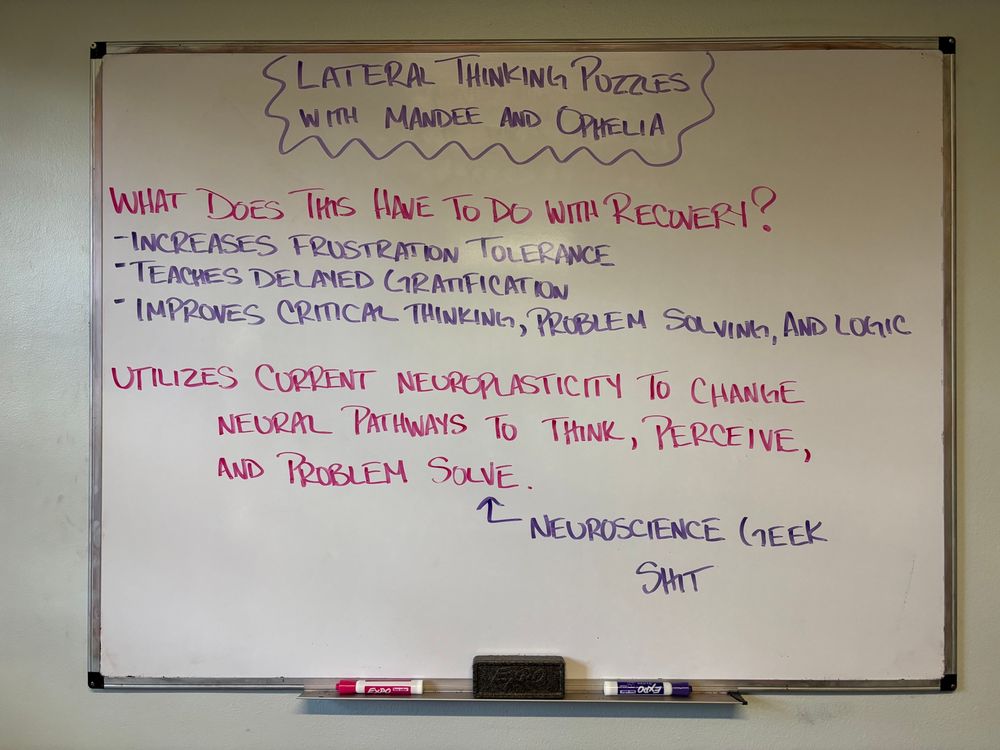 LATERAL THINKING PUZZLES
WITH MANDEE AND OPHELIA
WHAT DOES THIS HAVE TO DO WITH RECOVERY?
-INCREASES FRUSTRATION TOLERANCE
-TEACHES DELAYED GRATIFICATION
-IMPROVES CRITICAL THINKING, PROBLEM SOLVING, AND LOGIC
UTILIZES CURRENT NEUROPLASTICITY TO CHANGE
NEURAL PATHWAYS TO THINK, PERCEIVE,
AND PROBLEM SOLVE.
NEUROSCIENCE GEEK
SHIT
EXPO
EXPO
EXPO